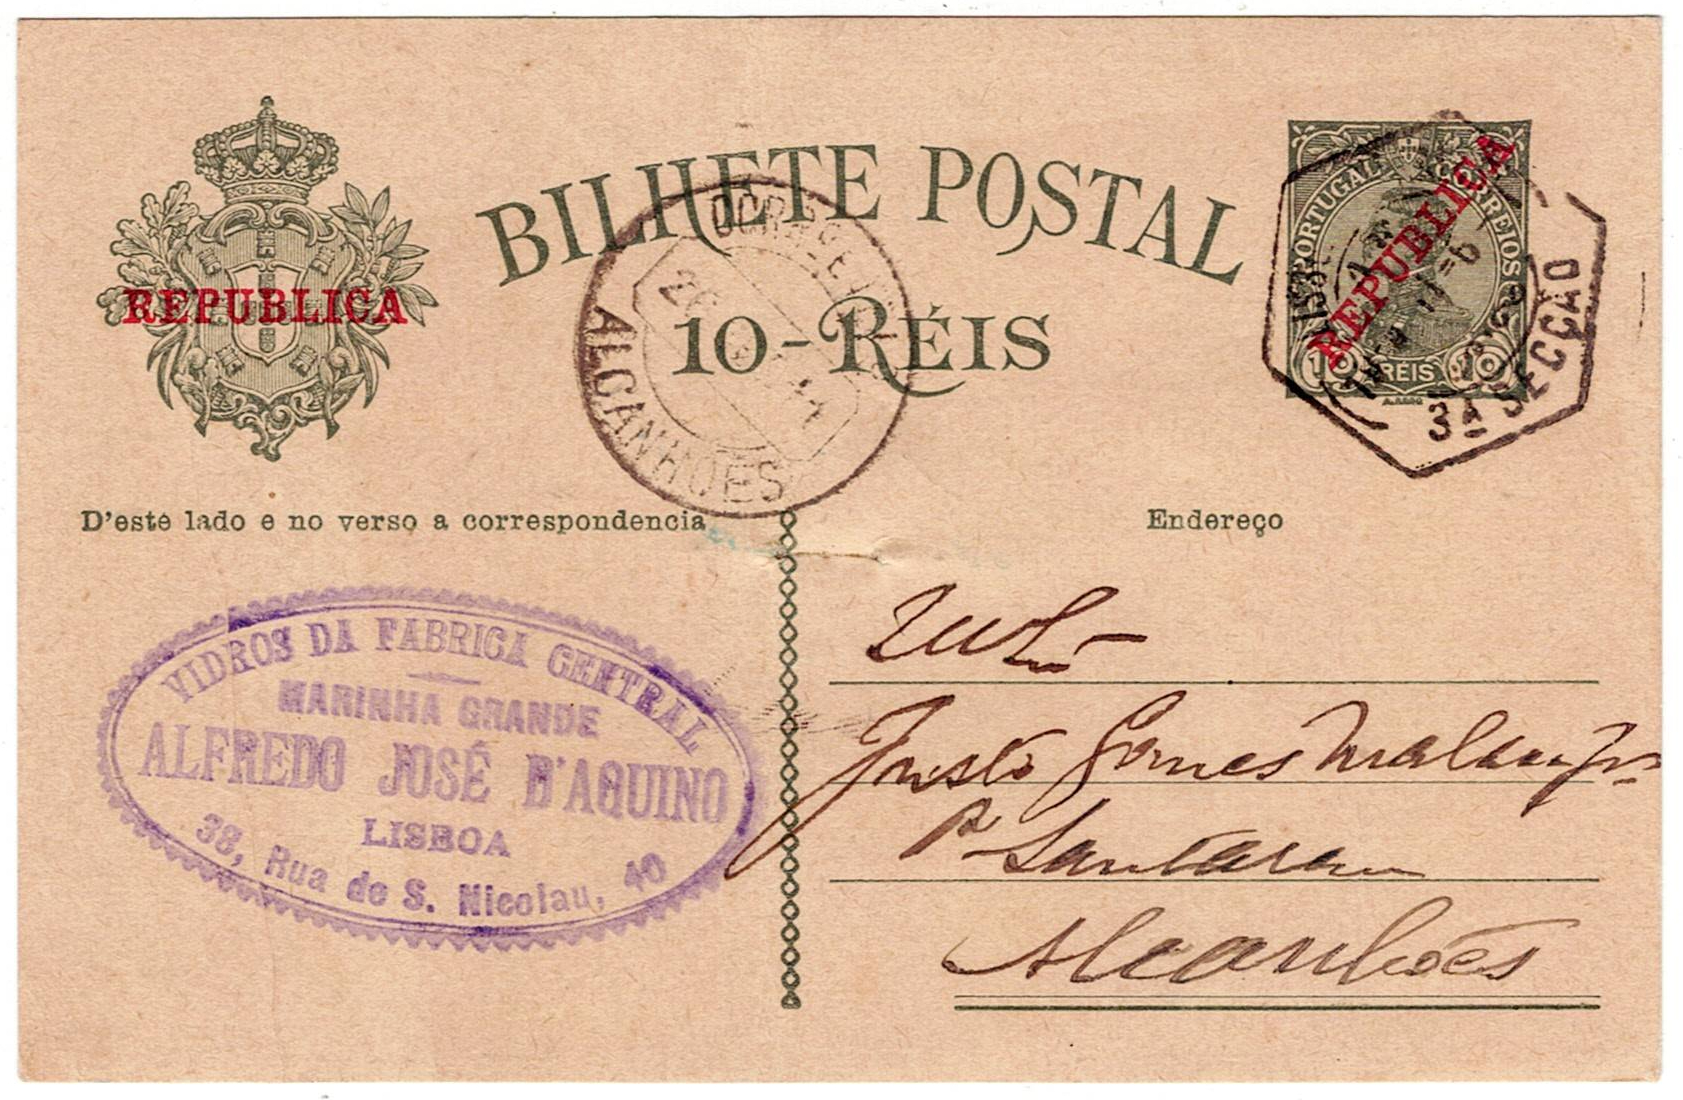 BILHETE POSTAL
10-RÉIS
REPUBLICA
PORTUGAL CORREIOS
REPUBLICA
10 RÉIS 10
3A SECÇÃO
26
ALCANHÕES
D'este lado e no verso a correspondencia
Endereço
VIDROS DA FABRICA CENTRAL
MARINHA GRANDE
ALFREDO JOSÉ D'AQUINO
LISBOA
38, Rua de S. Nicolau, 40
Justo Gomes
Santarem
Alcanhões